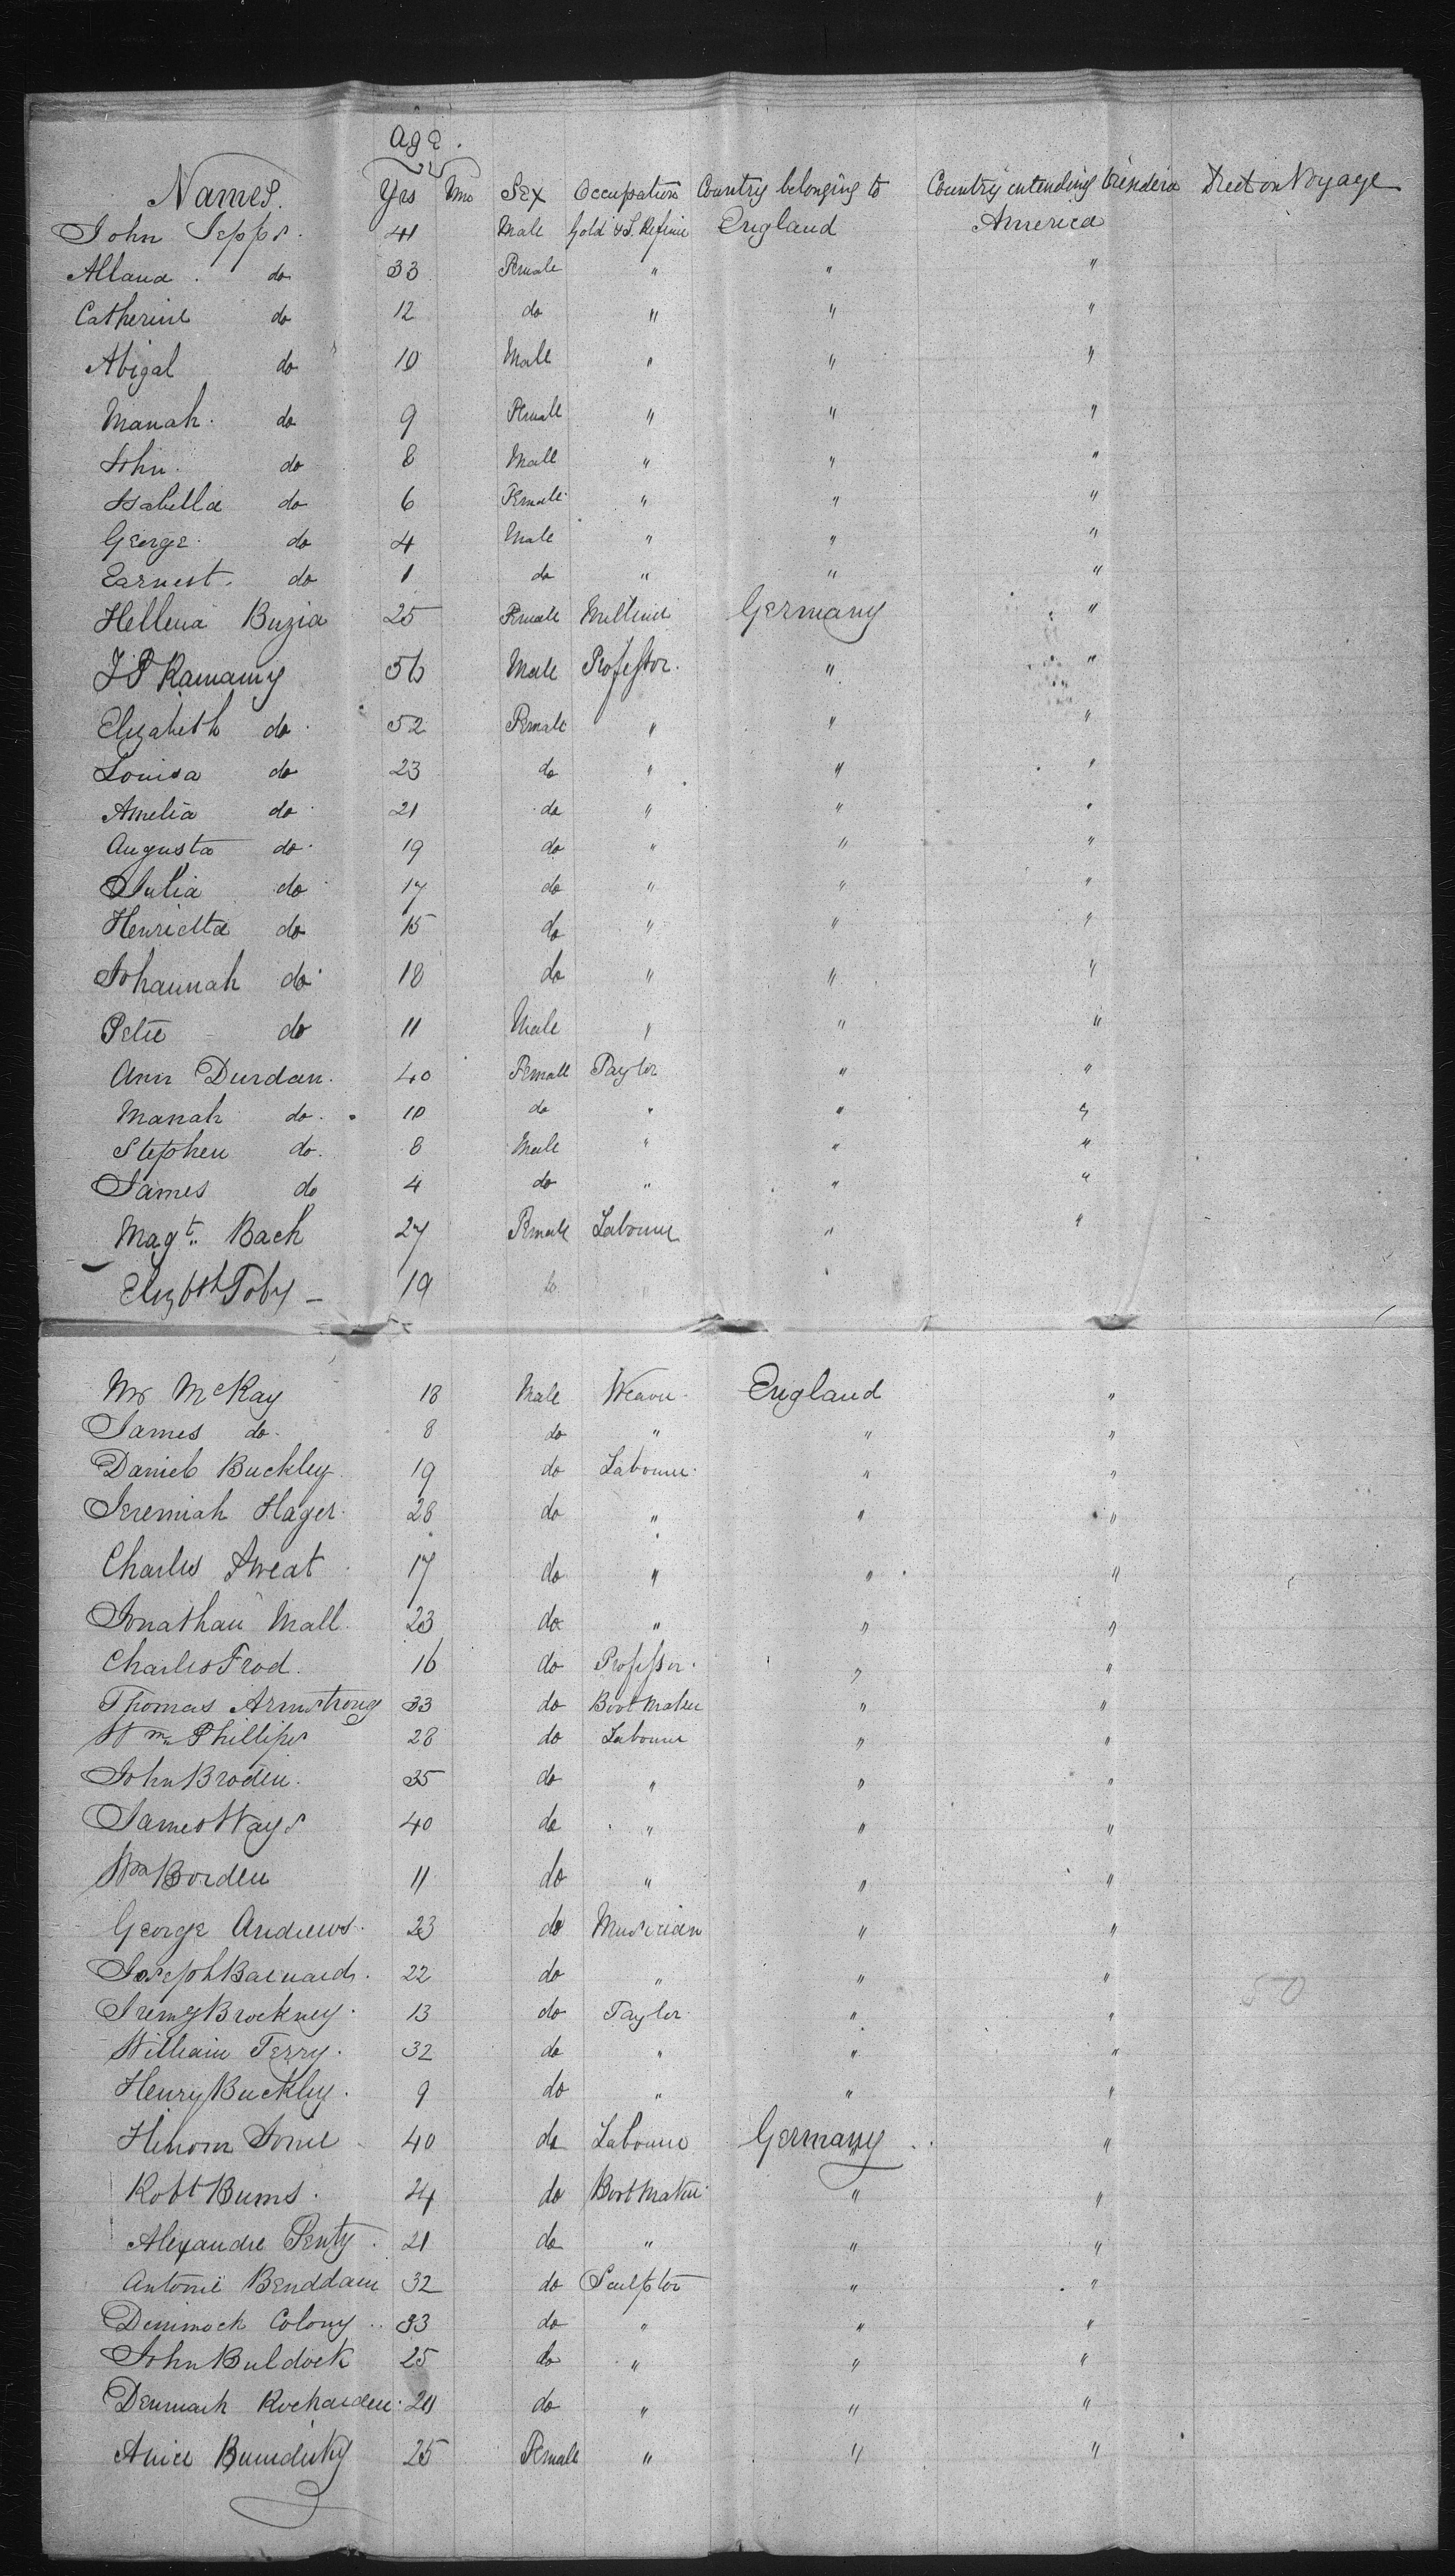 Age.
Names. Yrs Mns Sex Occupation Country belonging to Country intending to reside in Died on Voyage
John Jepps. 41 Male Gold & S. Refiner England America
Allana. do 33 Female " " "
Catherine do 12 do " " "
Abigal do 10 Male " " "
Manah. do 9 Female " " "
John. do 8 Male " " "
Isabella do 6 Female " " "
George. do 4 Male " " "
Earnest. do 1 do " " "
Hellena Buzia 25 Female Germany "
J P Ramamy 56 Male Professor. " "
Elizabeth do 52 Female " " "
Louisa do 23 do " " "
Amelia do 21 do " " "
Augusta do. 19 do " " "
Julia do 17 do " " "
Henrietta do 15 do " " "
Johannah do 18 do " " "
Peter do 11 Male " " "
Ann Durdan. 40 Female Taylor " "
Manah do. 10 do " " "
Stephen do. 8 Male " " "
James do 4 do " " "
Magt. Bach 27 Female Labourer " "
Elizbth Toby - 19 do
Mr McKay 18 Male Weaver England "
James do. 8 do " " "
Daniel Buckley 19 do Labourer. " "
Jeremiah Hager. 28 do " " "
Charles Sweat 17 do " " "
Jonathan Mall 23 do " " "
Charles Frod. 16 do Professor. " "
Thomas Armstrong 33 do Boot Maker " "
Wm Phillips 28 do Labourer " "
John Broden. 35 do " " "
James Ways 40 do " " "
Wm Borden 11 do " " "
George Andrews. 23 do Musician " "
Joseph Barnards. 22 do " " " 50
Jremy Brockney. 13 do Taylor " "
William Terry. 32 do " " "
Henry Buckley. 9 do " " "
40 do Labourer Germany "
Robt Burns. 24 do Boot Maker " "
Alexandre Penty. 21 do " " "
Antonie Benddam 32 do Sculptor " "
Demmock Colony 33 do " " "
John Buldock 25 do " " "
Denmark do " " "
25 Female " " "